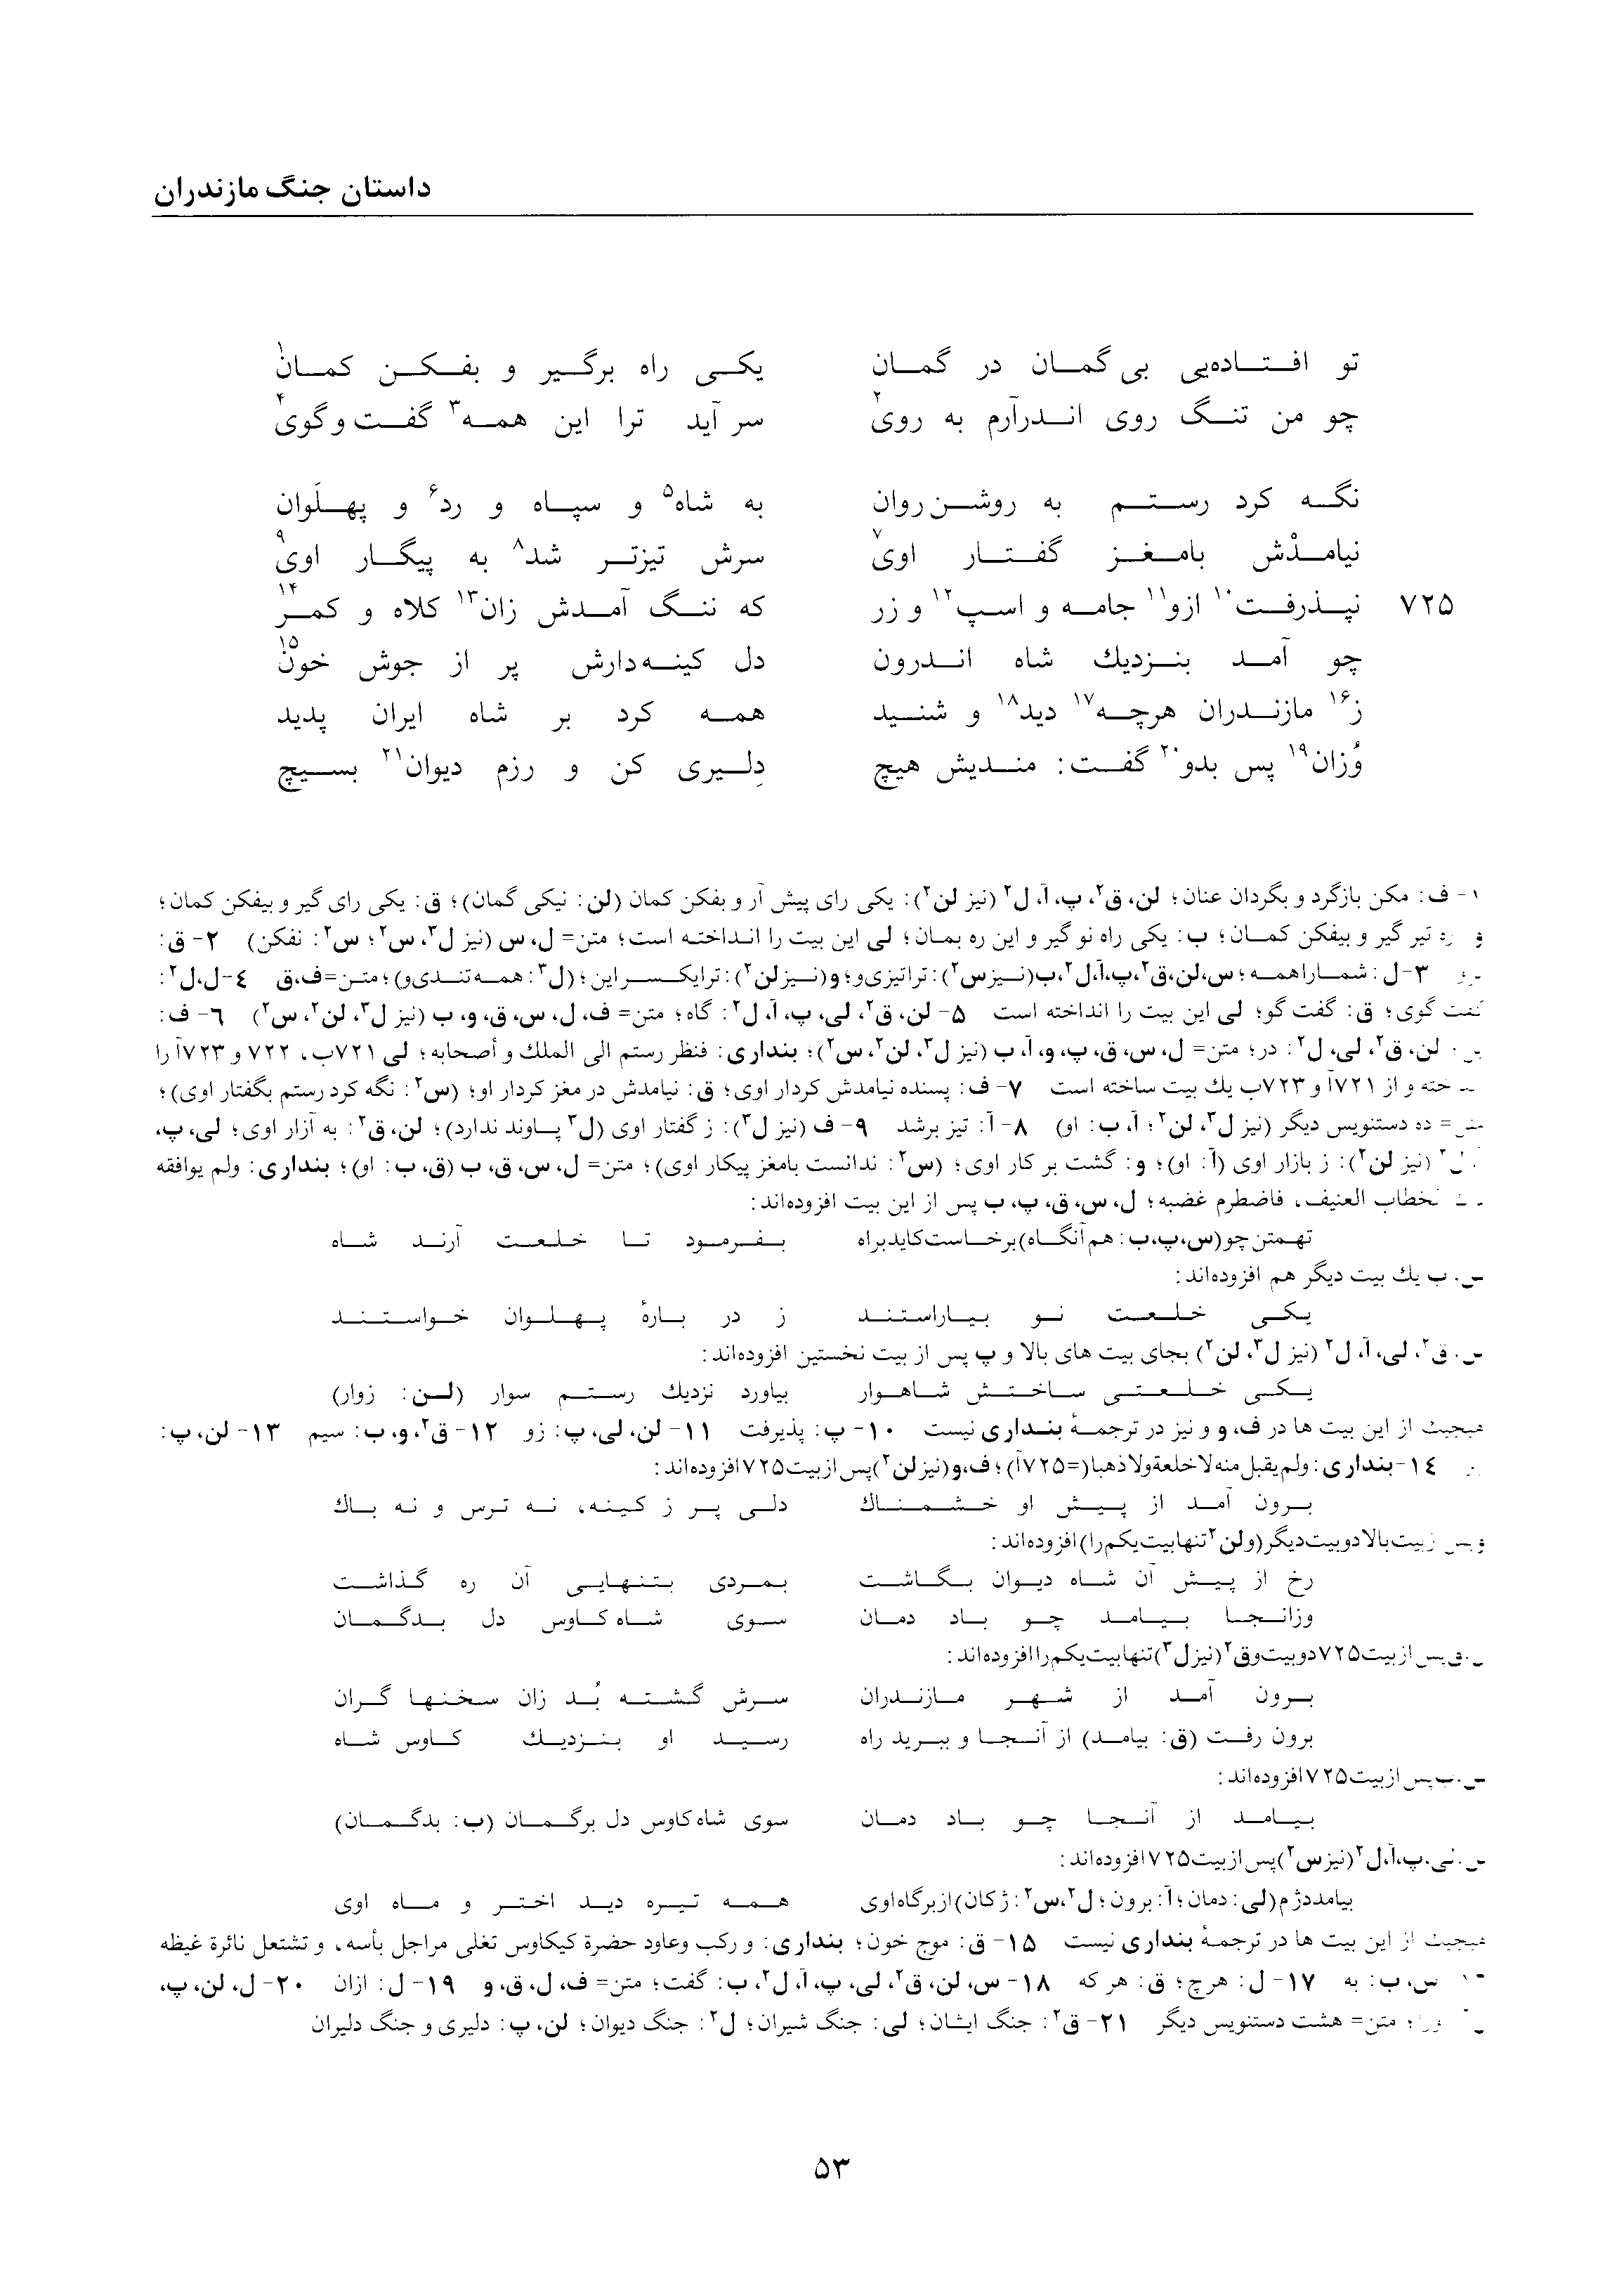 داستان جنگ مازندران
تو افتاده‌یی بی گمان در گمان یکی راه برگیر و بفکن کمان۱
چو من تنگ روی اندرآرم به روی۲ سر آید ترا این همه۳ گفت و گوی۴
نگه کرد رستم به روشن‌روان به شاه۵ و سپاه و رد۶ و پهلوان
نیامدْش بامغز گفتار اوی۷ سرش تیزتر شد۸ به پیگار اوی۹
۷۲۵ نپذرفت۱۰ ازو۱۱ جامه و اسپ۱۲ و زر که ننگ آمدش زان۱۳ کلاه و کمر۱۴
چو آمد بنزدیك شاه اندرون دل کینه‌دارش پر از جوش خون۱۵
ز۱۶ مازندران هرچه۱۷ دید۱۸ و شنید همه کرد بر شاه ایران پدید
وُزان۱۹ پس بدو۲۰ گفت: مندیش هیچ دلیری کن و رزم دیوان۲۱ بسیچ
۱- ف: مکن بازگرد و بگردان عنان؛ لن، ق۲، پ، آ، ل۲ (نیز لن۲): یکی رای پیش آر و بفکن کمان (لن: نیکی گمان)؛ ق: یکی رای گیر و بیفکن کمان؛
و ره تیر گیر و بیفکن کمان؛ ب: یکی راه نو گیر و این ره بمان؛ لی این بیت را انداخته است؛ متن= ل، س (نیز ل۳، س۲؛ س۲: نفکن) ۲- ق:
۳- ل: شما را همه؛ س، لن، ق۲، پ، آ، ل۲، ب (نیز س۲): ترا تیزی و؛ و (نیز لن۲): ترا یکسر این؛ (ل۳: همه تندی و)؛ متن= ف، ق ۴- ل، ل۲:
گفت گوی؛ ق: گفت گو؛ لی این بیت را انداخته است ۵- لن، ق۲، لی، پ، آ، ل۲: گاه؛ متن= ف، ل، س، ق، و، ب (نیز ل۳، لن۲، س۲) ۶- ف:
لن، ق۲، لی، ل۲: در؛ متن= ل، س، ق، پ، و، آ، ب (نیز ل۳، لن۲، س۲)؛ بنداری: فنظر رستم الی الملك و أصحابه؛ لی ۷۲۱ب، ۷۲۲ و ۷۲۳آ را
خته و از ۷۲۱آ و ۷۲۳ب یك بیت ساخته است ۷- ف: پسنده نیامدش کردار اوی؛ ق: نیامدش در مغز کردار او؛ (س۲: نگه کرد رستم بگفتار اوی)؛
متن= ده دستنویس دیگر (نیز ل۳، لن۲؛ آ، ب: او) ۸- آ: تیز برشد ۹- ف (نیز ل۳): ز گفتار اوی (ل۳ پساوند ندارد)؛ لن، ق۲: به آزار اوی؛ لی، پ،
ل۲ (نیز لن۲): ز بازار اوی (آ: او)؛ و: گشت بر کار اوی؛ (س۲: ندانست بامغز پیکار اوی)؛ متن= ل، س، ق، ب (ق، ب: او)؛ بنداری: ولم یوافقه
لخطاب العنیف، فاضطرم غضبه؛ ل، س، ق، پ، ب پس از این بیت افزوده‌اند:
تهمتن چو (س، پ، ب: هم آنگاه) برخاست کاید براه بفرمود تا خلعت آرند شاه
س، ب یك بیت دیگر هم افزوده‌اند:
یکی خلعت نو بیاراستند ز در بارهٔ پهلوان خواستند
ق۲، لی، آ، ل۲ (نیز ل۳، لن۲) بجای بیت های بالا و پ پس از بیت نخستین افزوده‌اند:
یکی خلعتی ساختش شاهوار بیاورد نزدیك رستم سوار (لن: زوار)
هیچیك از این بیت ها در ف، و و نیز در ترجمهٔ بنداری نیست ۱۰- پ: پذیرفت ۱۱- لن، لی، پ: زو ۱۲- ق۲، و، ب: سیم ۱۳- لن، پ:
۱۴- بنداری: ولم یقبل منه لا خلعة ولا ذهبا (=۷۲۵آ)؛ ف، و (نیز لن۲) پس از بیت ۷۲۵ افزوده‌اند:
برون آمد از پیش او خشمناك دلی پر ز کینه، نه ترس و نه باك
و پس از بیت بالا دو بیت دیگر (و لن۲ تنها بیت یکم را) افزوده‌اند:
رخ از پیش آن شاه دیوان بگاشت بمردی بتنهایی آن ره گذاشت
وزانجا بیامد چو باد دمان سوی شاه کاوس دل بدگمان
ق پس از بیت ۷۲۵ دو بیت و ق۲ (نیز ل۳) تنها بیت یکم را افزوده‌اند:
برون آمد از شهر مازندران سرش گشته بُد زان سخنها گران
برون رفت (ق: بیامد) از آنجا و ببرید راه رسید او بنزدیك کاوس شاه
س، ب پس از بیت ۷۲۵ افزوده‌اند:
بیامد از آنجا چو باد دمان سوی شاه کاوس دل برگمان (ب: بدگمان)
لی، پ، آ، ل۲ (نیز س۲) پس از بیت ۷۲۵ افزوده‌اند:
بیامد دژم (لی: دمان؛ آ: برون؛ ل۲، س۲: ژکان) از برگاه اوی همه تیره دید اختر و ماه اوی
هیچیك از این بیت ها در ترجمهٔ بنداری نیست ۱۵- ق: موج خون؛ بنداری: و رکب وعاود حضرة کیکاوس تغلی مراجل بأسه، و تشتعل نائرة غیظه
س، ب: به ۱۷- ل: هرچ؛ ق: هر که ۱۸- س، لن، ق۲، لی، پ، آ، ل۲، ب: گفت؛ متن= ف، ل، ق، و ۱۹- ل: ازان ۲۰- ل، لن، پ،
متن= هشت دستنویس دیگر ۲۱- ق۲: جنگ ایشان؛ لی: جنگ شیران؛ ل۲: جنگ دیوان؛ لن، پ: دلیری و جنگ دلیران
۵۳